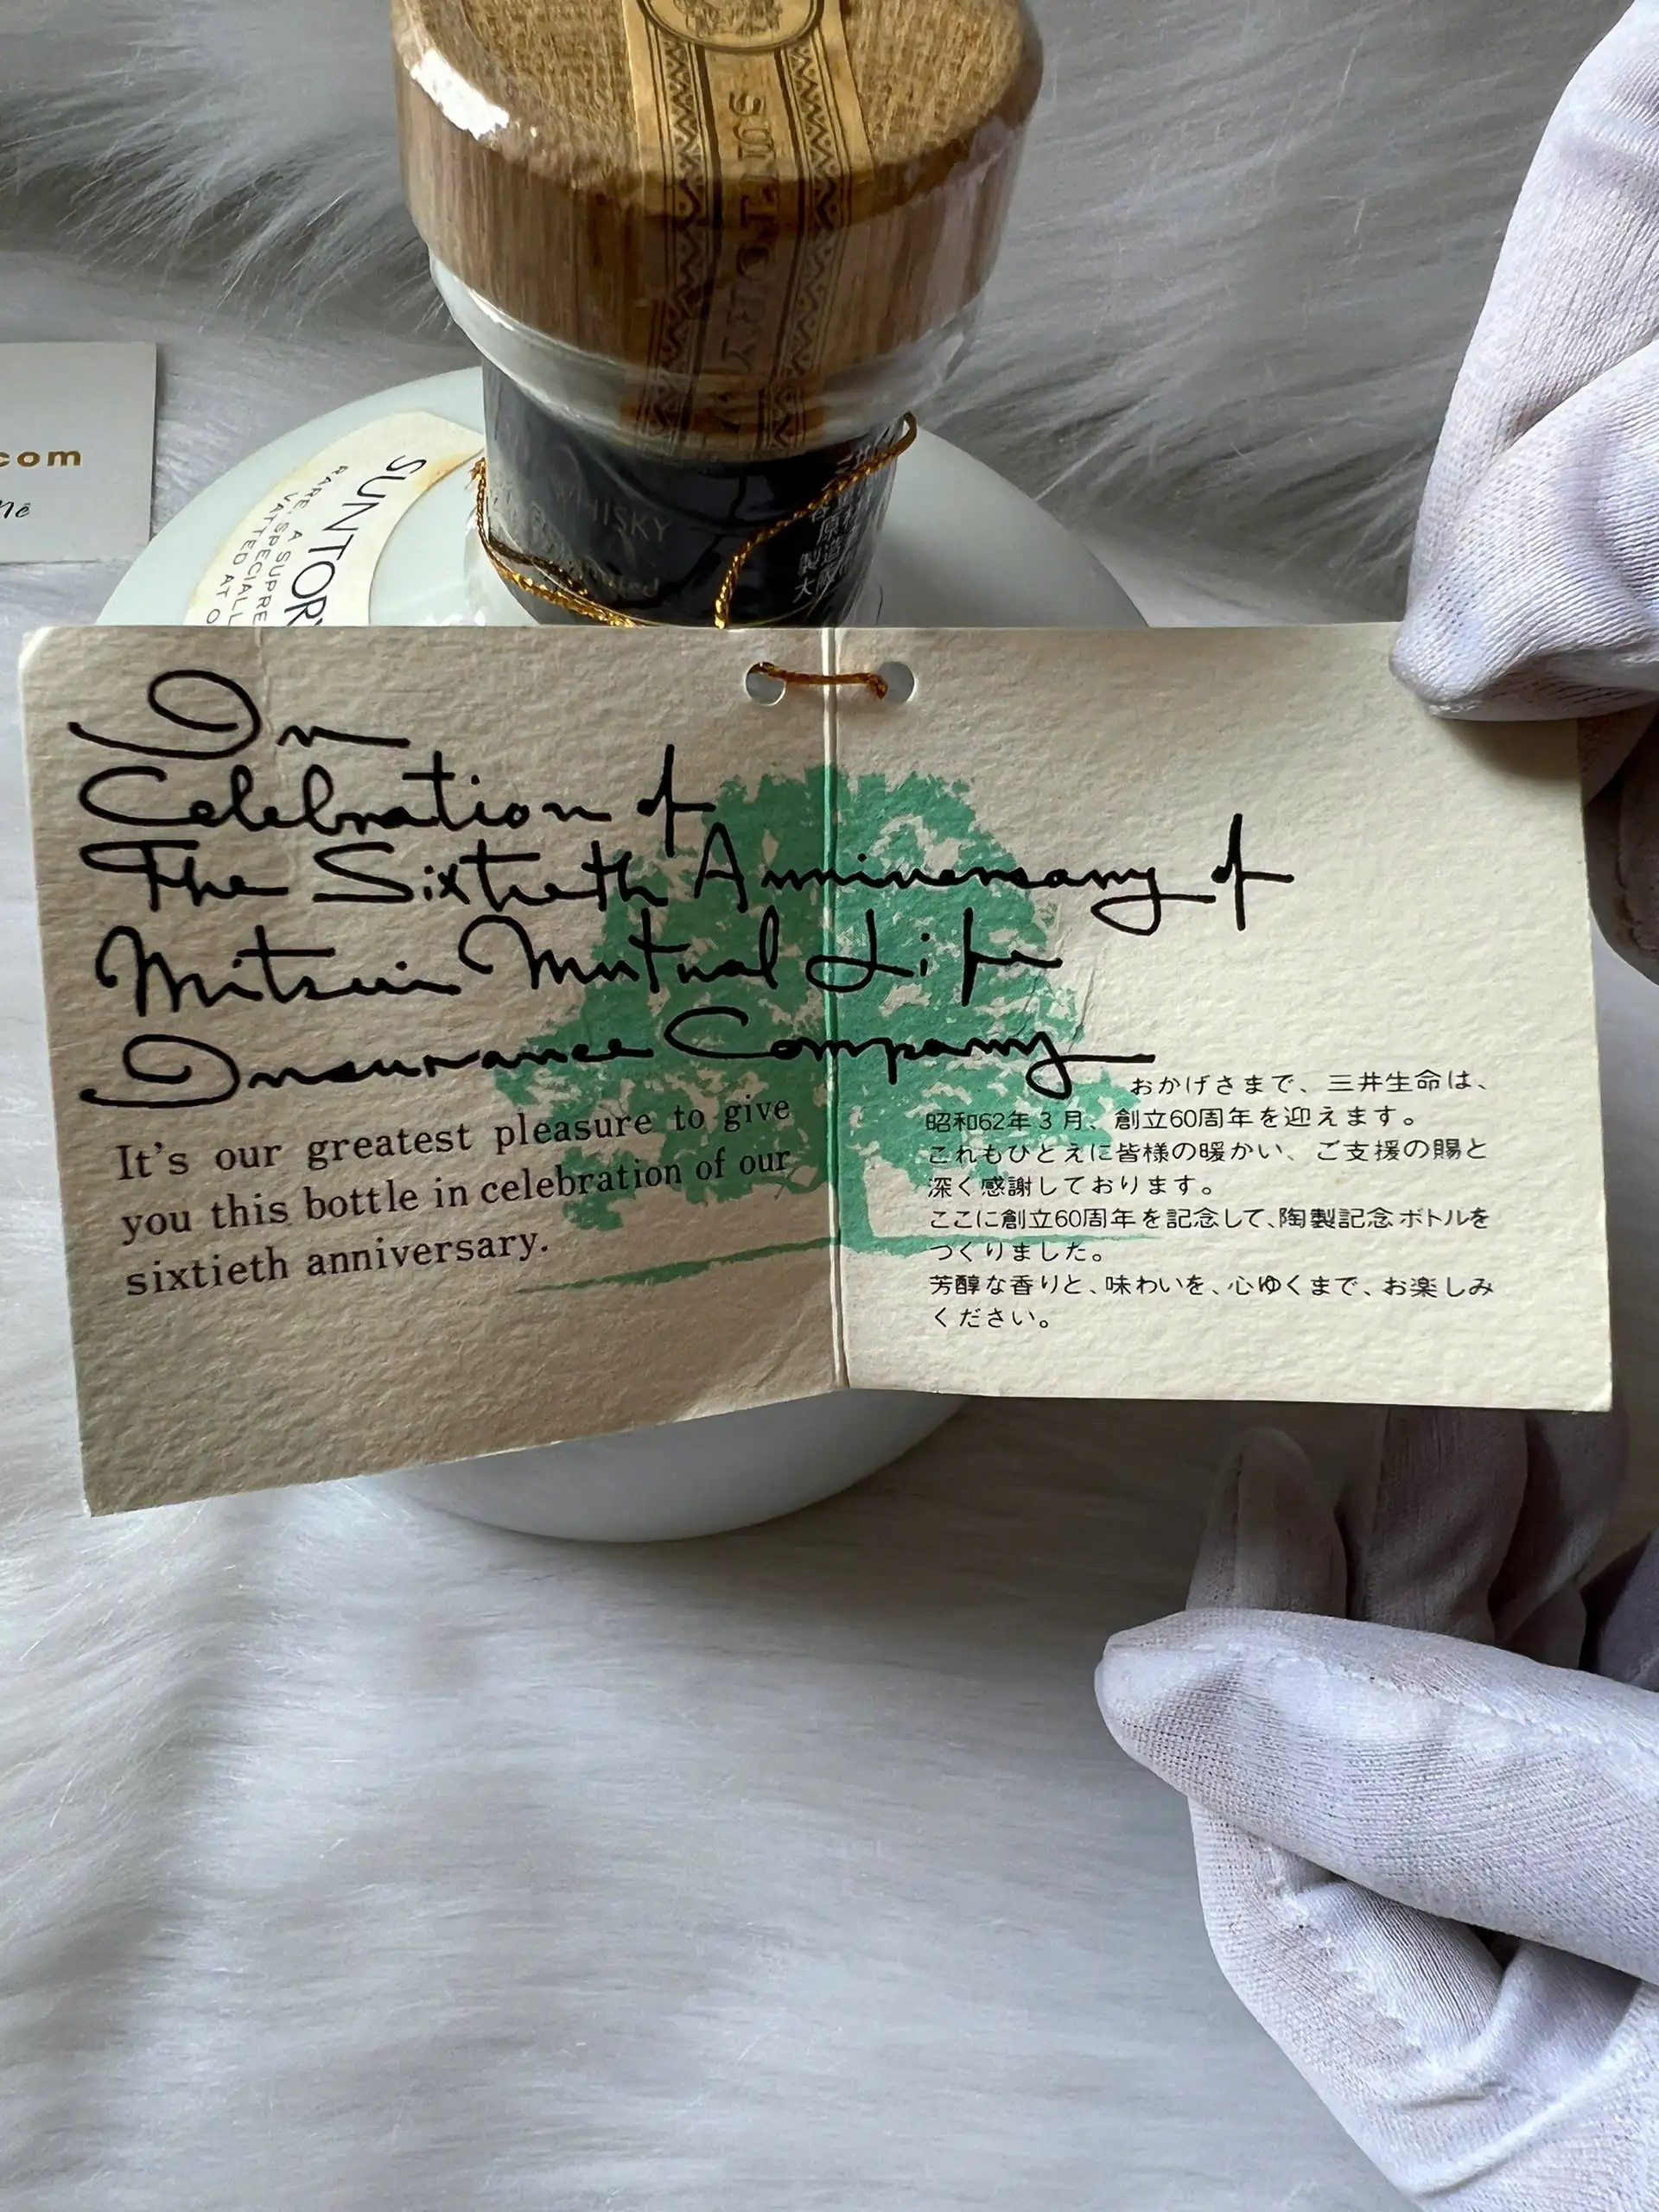 SUNTORY
com
SUNTORY
RARE, A SUPRE
SPECIALL
VATTED AT O
WHISKY
In
Celebration of
The Sixtieth Anniversary of
Mitsui Mutual Life
Insurance Company
It's our greatest pleasure to give
you this bottle in celebration of our
sixtieth anniversary.
おかげさまで、三井生命は、
昭和62年3月、創立60周年を迎えます。
これもひとえに皆様の暖かい、ご支援の賜と
深く感謝しております。
ここに創立60周年を記念して、陶製記念ボトルを
つくりました。
芳醇な香りと、味わいを、心ゆくまで、お楽しみ
ください。